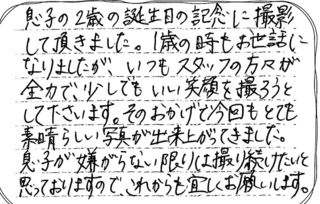 息子の2歳の誕生日の記念に撮影
して頂きました。1歳の時もお世話に
なりましたが、いつもスタッフの方々が
全力で、少しでもいい笑顔を撮ろうと
して下さいます。そのおかげで今回もとても
素晴らしい写真が出来上がってきました。
息子が嫌がらない限りは撮り続けたいと
思っておりますので、これからも宜しくお願いします。